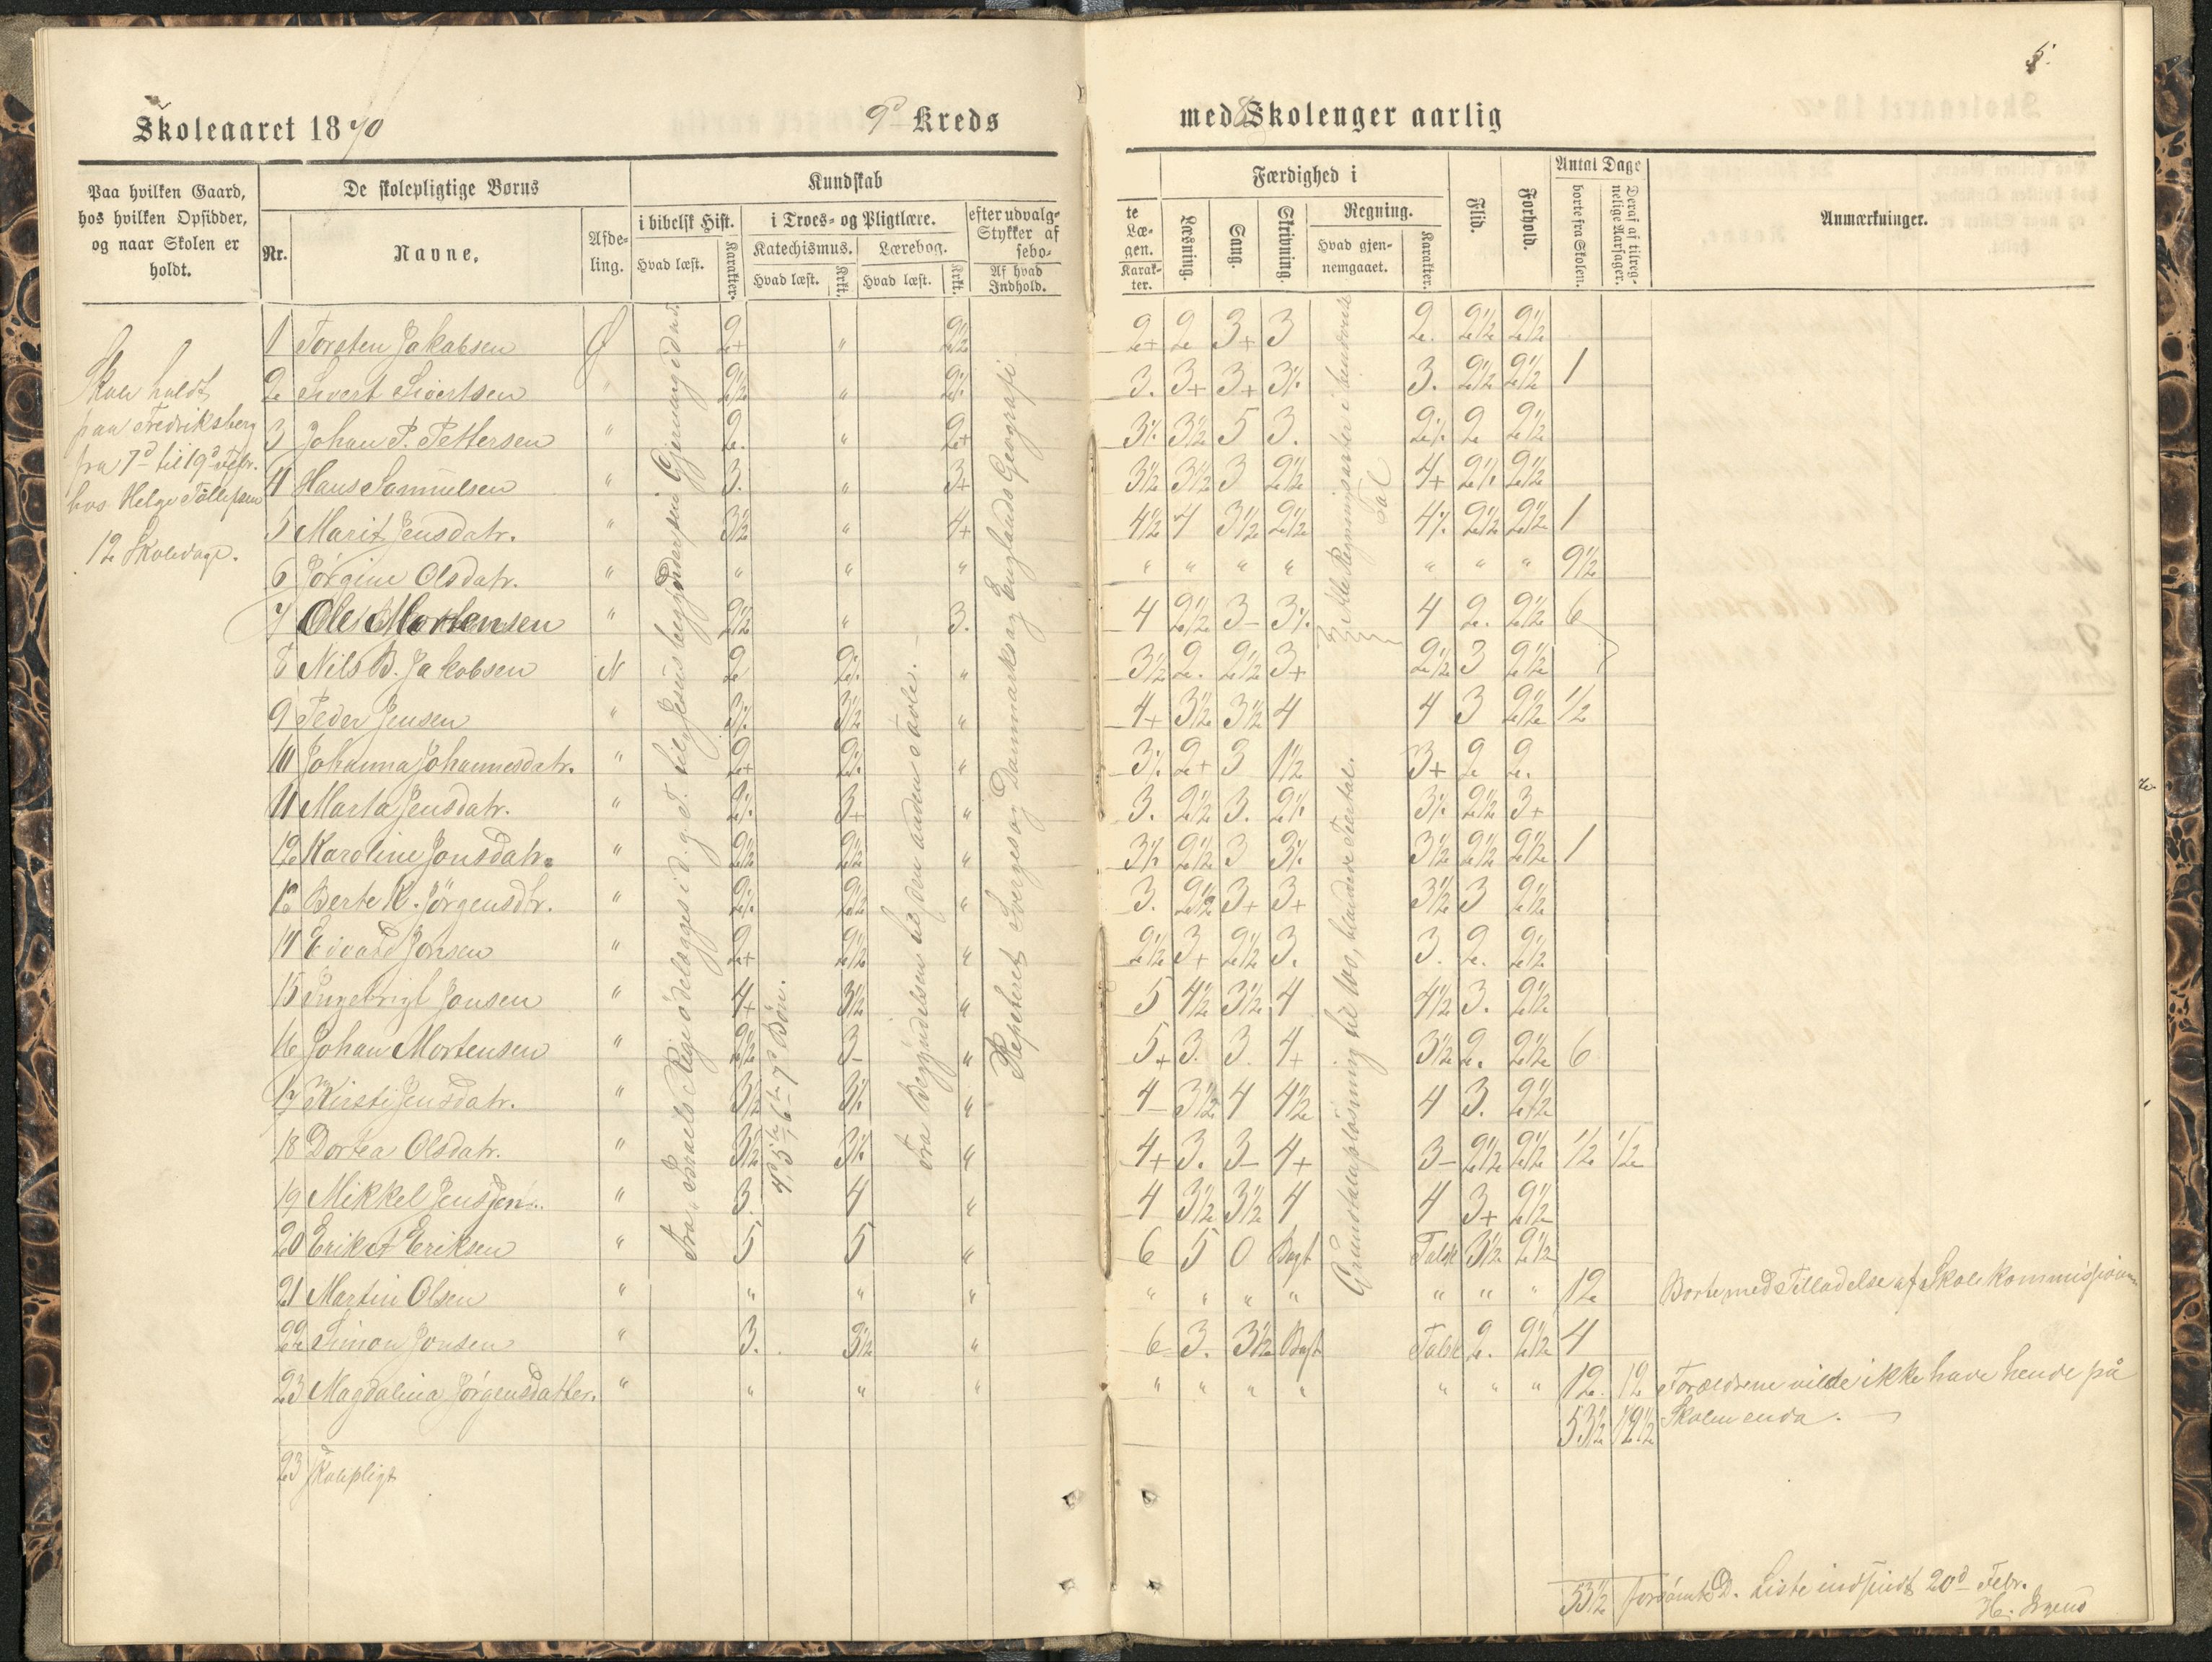 5.
Skoleaaret 1870
9d Kreds
med 8 Skolenger aarlig
Paa hvilken Gaard,
hos hvilken Opsidder,
og naar Skolen er
holdt.
De skolepligtige Børns
Nr.
Navne.
Afde-
ling.
Kundskab
i bibelsk Hist.
Hvad læst.
Karakter.
i Troes- og Pligtlære.
Katechismus.
Hvad læst.
Krkt.
Lærebog.
Hvad læst.
Krkt.
efter udvalg-
Stykker af
sebo-
Af hvad
Indhold.
te
Læ-
gen.
Karak-
ter.
Færdighed i
Læsning.
Sang.
Skrivning.
Regning.
Hvad gjen-
nemgaaet.
Karakter.
Flid.
Forhold.
Antal Dage
borte fra Skolen.
Deraf af tilreg-
nelige Aarsager.
Anmærkninger.
Skole holdt
paa Fredriksberg
fra 7d til 19d Febr.
hos Helge Tollefsen
12 Skoledage.
Fra "Israels Rige ødelægges i d. g. T. til "Jesus begynder sin Gjerning i d. n.
4d, 5te, 6te 7d Bön.
Fra Begyndelsen til den anden Tavle.
Repeteret Sverges og Danmarks og Englands Geografi
4 Regningsarter i benævnte
Tal
Grundtalopløsning til 100, blandede Tiertal.
1 Torsten Jakobsen Ø 2+ " 2½ 2+ 2 3+ 3 2. 2½ 2½
2 Sivert Sivertsen " 2½ " 2% 3. 3+ 3+ 3% 3. 2½ 2½ 1
3 Johan P. Pettersen " 2. " 2+ 3% 3½ 5 3. 2% 2 2½
4 Hans Samuelsen " 3. " 3+ 3½ 3½ 3 2½ 4+ 2% 2½
5 Marit Jensdatr. " 3½ " 4+ 4½ 4 3½ 2½ 4% 2½ 2½ 1
6 Jørgine Olsdatr. " " " " " " " " " " " 9½
7 Ole Mortensen " 2½ " 3. 4 2½ 3- 3% 4 2. 2½ 6
8 Nils B. Jakobsen N 2 2% " 3½ 2. 2½ 3+ 2½ 3 2½
9 Peder Jensen " 3% 3½ " 4+ 3½ 3½ 4 4 3 2½ ½
10 Johanna Johannesdatr. " 2+ 2% " 3% 2+ 3 1½ 3+ 2 2.
11 Marta Jensdatr. " 2% 3+ " 3. 2½ 3. 2% 3% 2½ 3+
12 Karoline Jonsdatr. " 2½ 2½ " 3% 2½ 3 3% 3½ 2½ 2½ 1
13 Berte K. Jörgensdtr. " 2% 2½ " 3. 2½ 3+ 3+ 3½ 3 2½
14 Edvard Jonsen " 2+ 2½ " 2½ 3+ 2½ 3. 3. 2. 2½
15 Ingebrigt Jonsen " 4+ 3½ " 5 4½ 3½ 4 4½ 3. 2½
16 Johan Mortensen " 2½ 3- " 5+ 3. 3. 4+ 3½ 2. 2½ 6
17 Kirsti Jensdatr. " 3½ 3% " 4- 3½ 4 4½ 4 3. 2½
18 Dortea Olsdatr. " 3½ 3% " 4+ 3. 3- 4+ 3- 2½ 2½ ½ ½
19 Mikkel Jensen " 3. 4 " 4 3½ 3½ 4 4 3+ 2½
20 Erik A Eriksen " 5 5 " 6 5 0 Bogt Talsk 3½ 2½
21 Martin Olsen " " " " " " " " " " " 12 Borte med Tilladelse af Skolekommissionen
22 Simon Jonsen " 3. 3½ " 6 3. 3½ Bogt Talsk 2. 2½ 4
23 Magdalina Jörgensdatter. " " " " " " " " " " " 12. 12 Forældrene vilde ikke have hende på
53½ 12½ Skolen enda.
23 Skolepligt
53½ forsömte D. Liste indsendt 20d Febr.